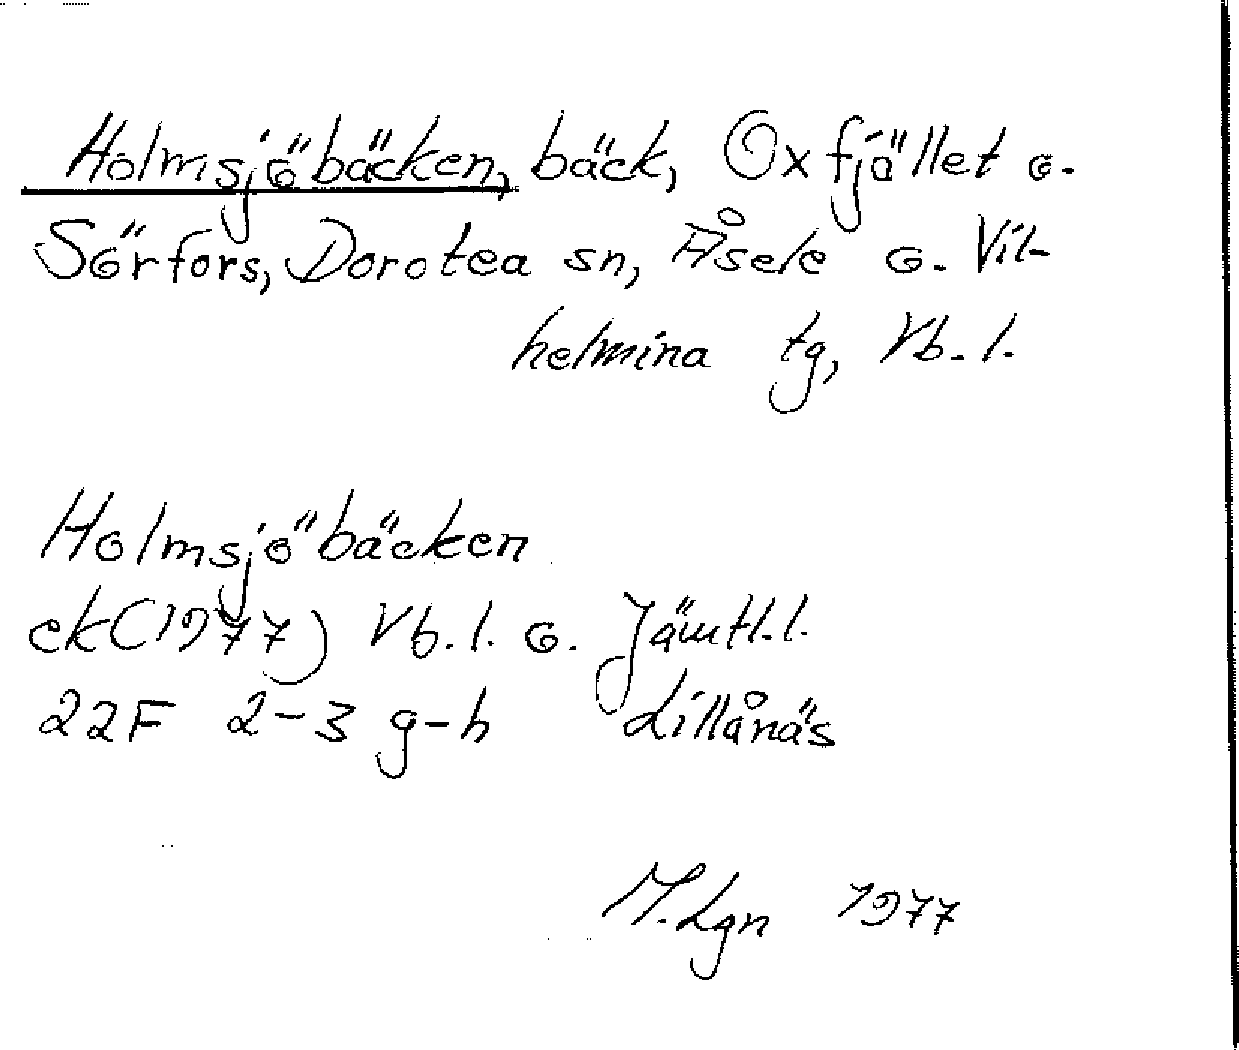 Holmsjöbäcken, bäck, Oxfjället o.
Sörfors, Dorotea sn, Åsele o. Vil-
helmina tg, Vb. l.
Holmsjöbäcken
ek (1977) Vb. l. o. Jämtl. l.
22F 2-3 g-h Lillånäs
M. Lgn 1977